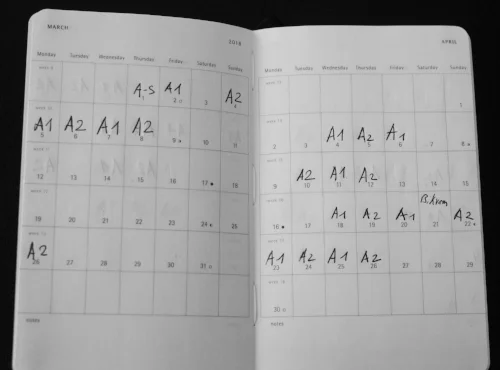 MARCH 2018
Monday Tuesday Wednesday Thursday Friday Saturday Sunday
A-S A1 A2
1 2 3
A1 A2 A1 A2
5 6 7 8 9 10 11
12 13 14 15 16 17 18
19 20 21 22 23 24 25
A2
26 27 28 29 30 31
notes
APRIL
Monday Tuesday Wednesday Thursday Friday Saturday Sunday
1
A1 A2 A1
2 3 4 5 6 7 8
A2 A1 A2
9 10 11 12 13 14 15
A1 A2 A1 A2
16 17 18 19 20 21 22
A1 A2 A1 A2
23 24 25 26 27 28 29
30
notes